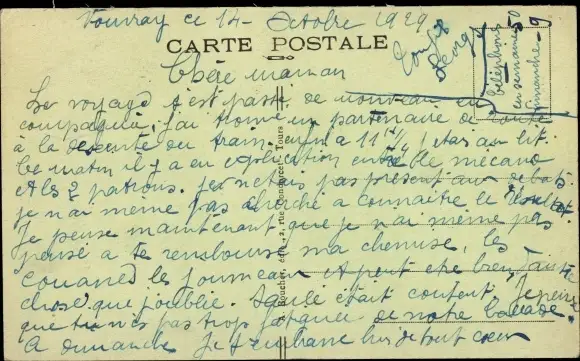 Vouvray ce 14 Octobre 1929
CARTE POSTALE
Téléphone 50
en semaine
Dimanche 9
Chère maman
Le voyage s'est passé de nouveau en
compagnie, j'ai trouvé un partenaire de route
à la descente du train. enfin à 11 h 1/4 j'étais au lit.
Ce matin il y a eu explication entre le mécano
et les 2 patrons. je n'étais pas présent aux débats.
je n'ai même pas cherché a connaitre le résultat
Je pense maintenant que je n'ai même pas
pensé a te rembourser ma chemise, les
le journaux et peut etre bien d'autre
chose que j'oublie. était content. Je pense
que tu n'es pas trop fatiguée de notre balade.
A dimanche Je t'embrasse bien de tout coeur
Boucher, édit., 2, rue du Commerce, Tours